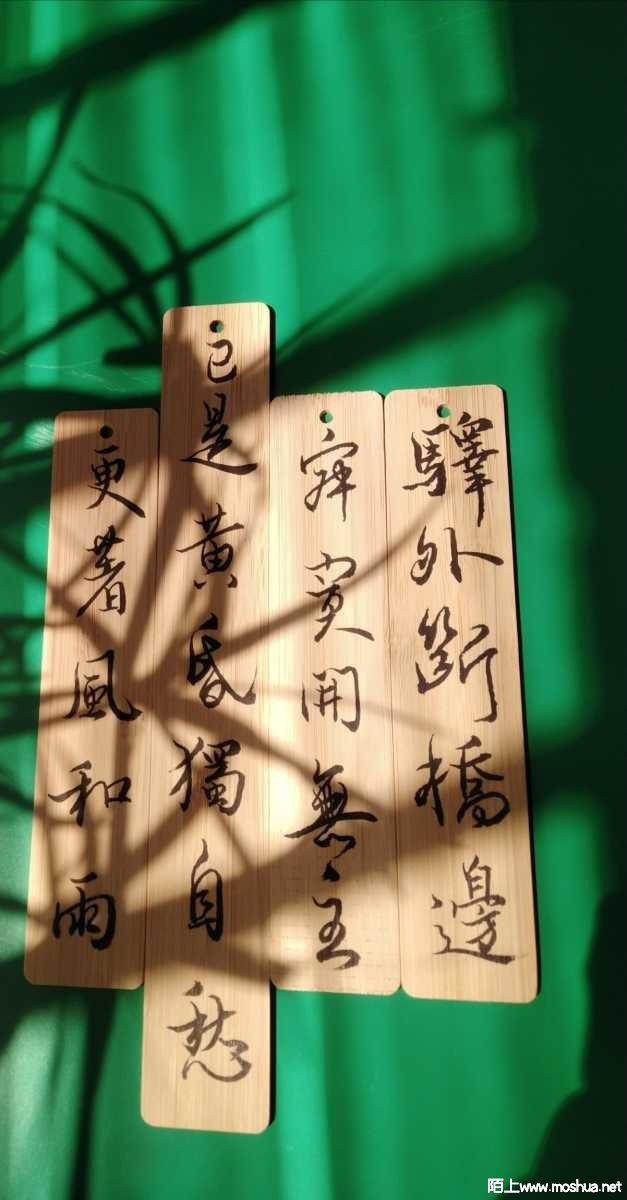 驛外斷橋邊
寂寞開無主
已是黃昏獨自愁
更著風和雨
陌上www.moshua.net